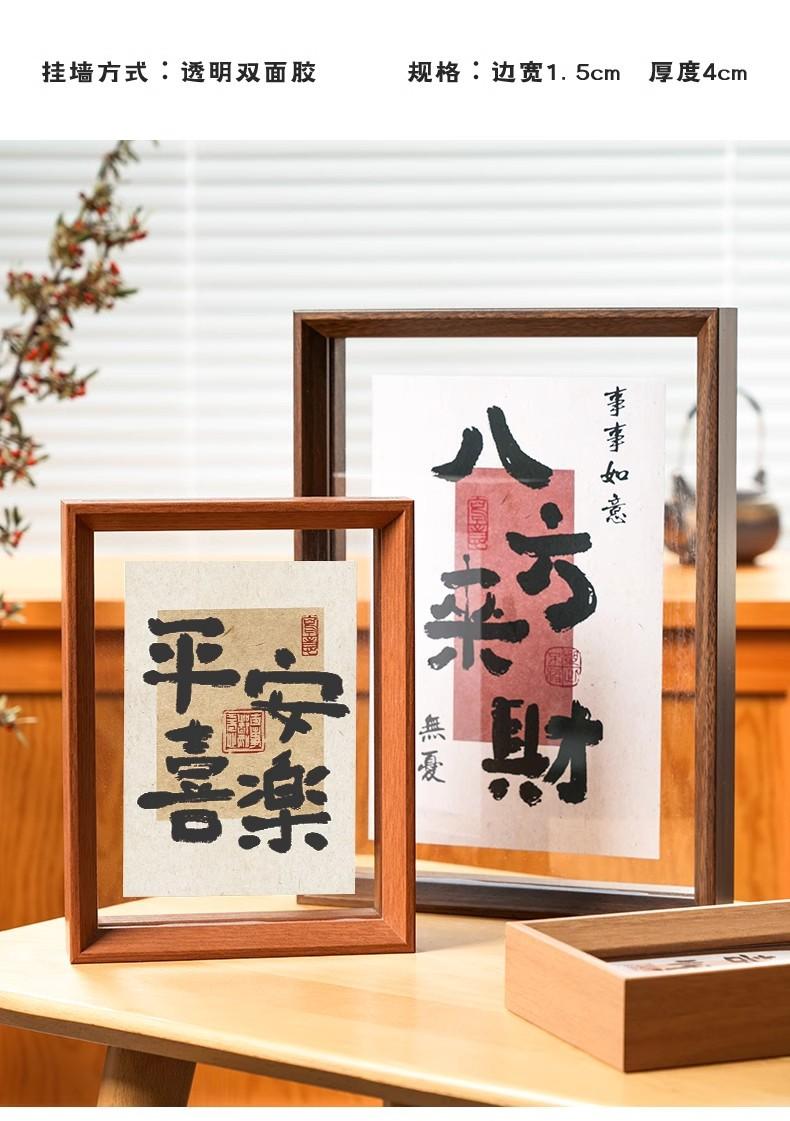 挂墙方式：透明双面胶
规格：边宽1.5cm 厚度4cm
事事如意
八方来財
無憂
平安
喜楽